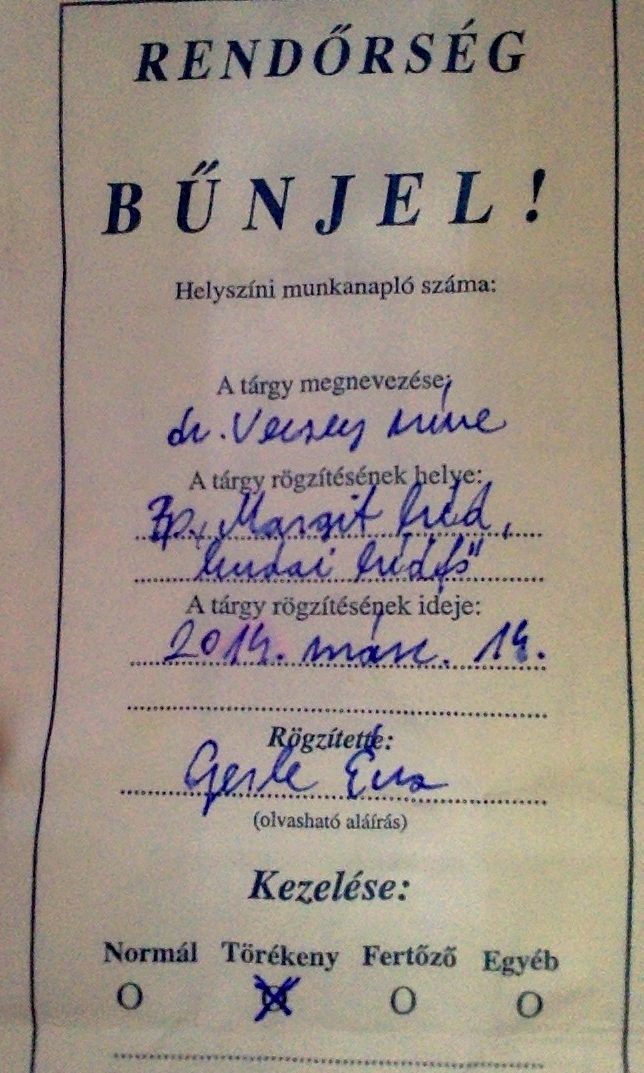 RENDŐRSÉG
BŰNJEL!
Helyszíni munkanapló száma:
A tárgy megnevezése:
dr. Vecsey műve
A tárgy rögzítésének helye:
Bp., Margit híd,
budai hídfő"
A tárgy rögzítésének ideje:
2014. márc. 14.
Rögzítette:
Gerle Éva
(olvasható aláírás)
Kezelése:
Normál Törékeny Fertőző Egyéb